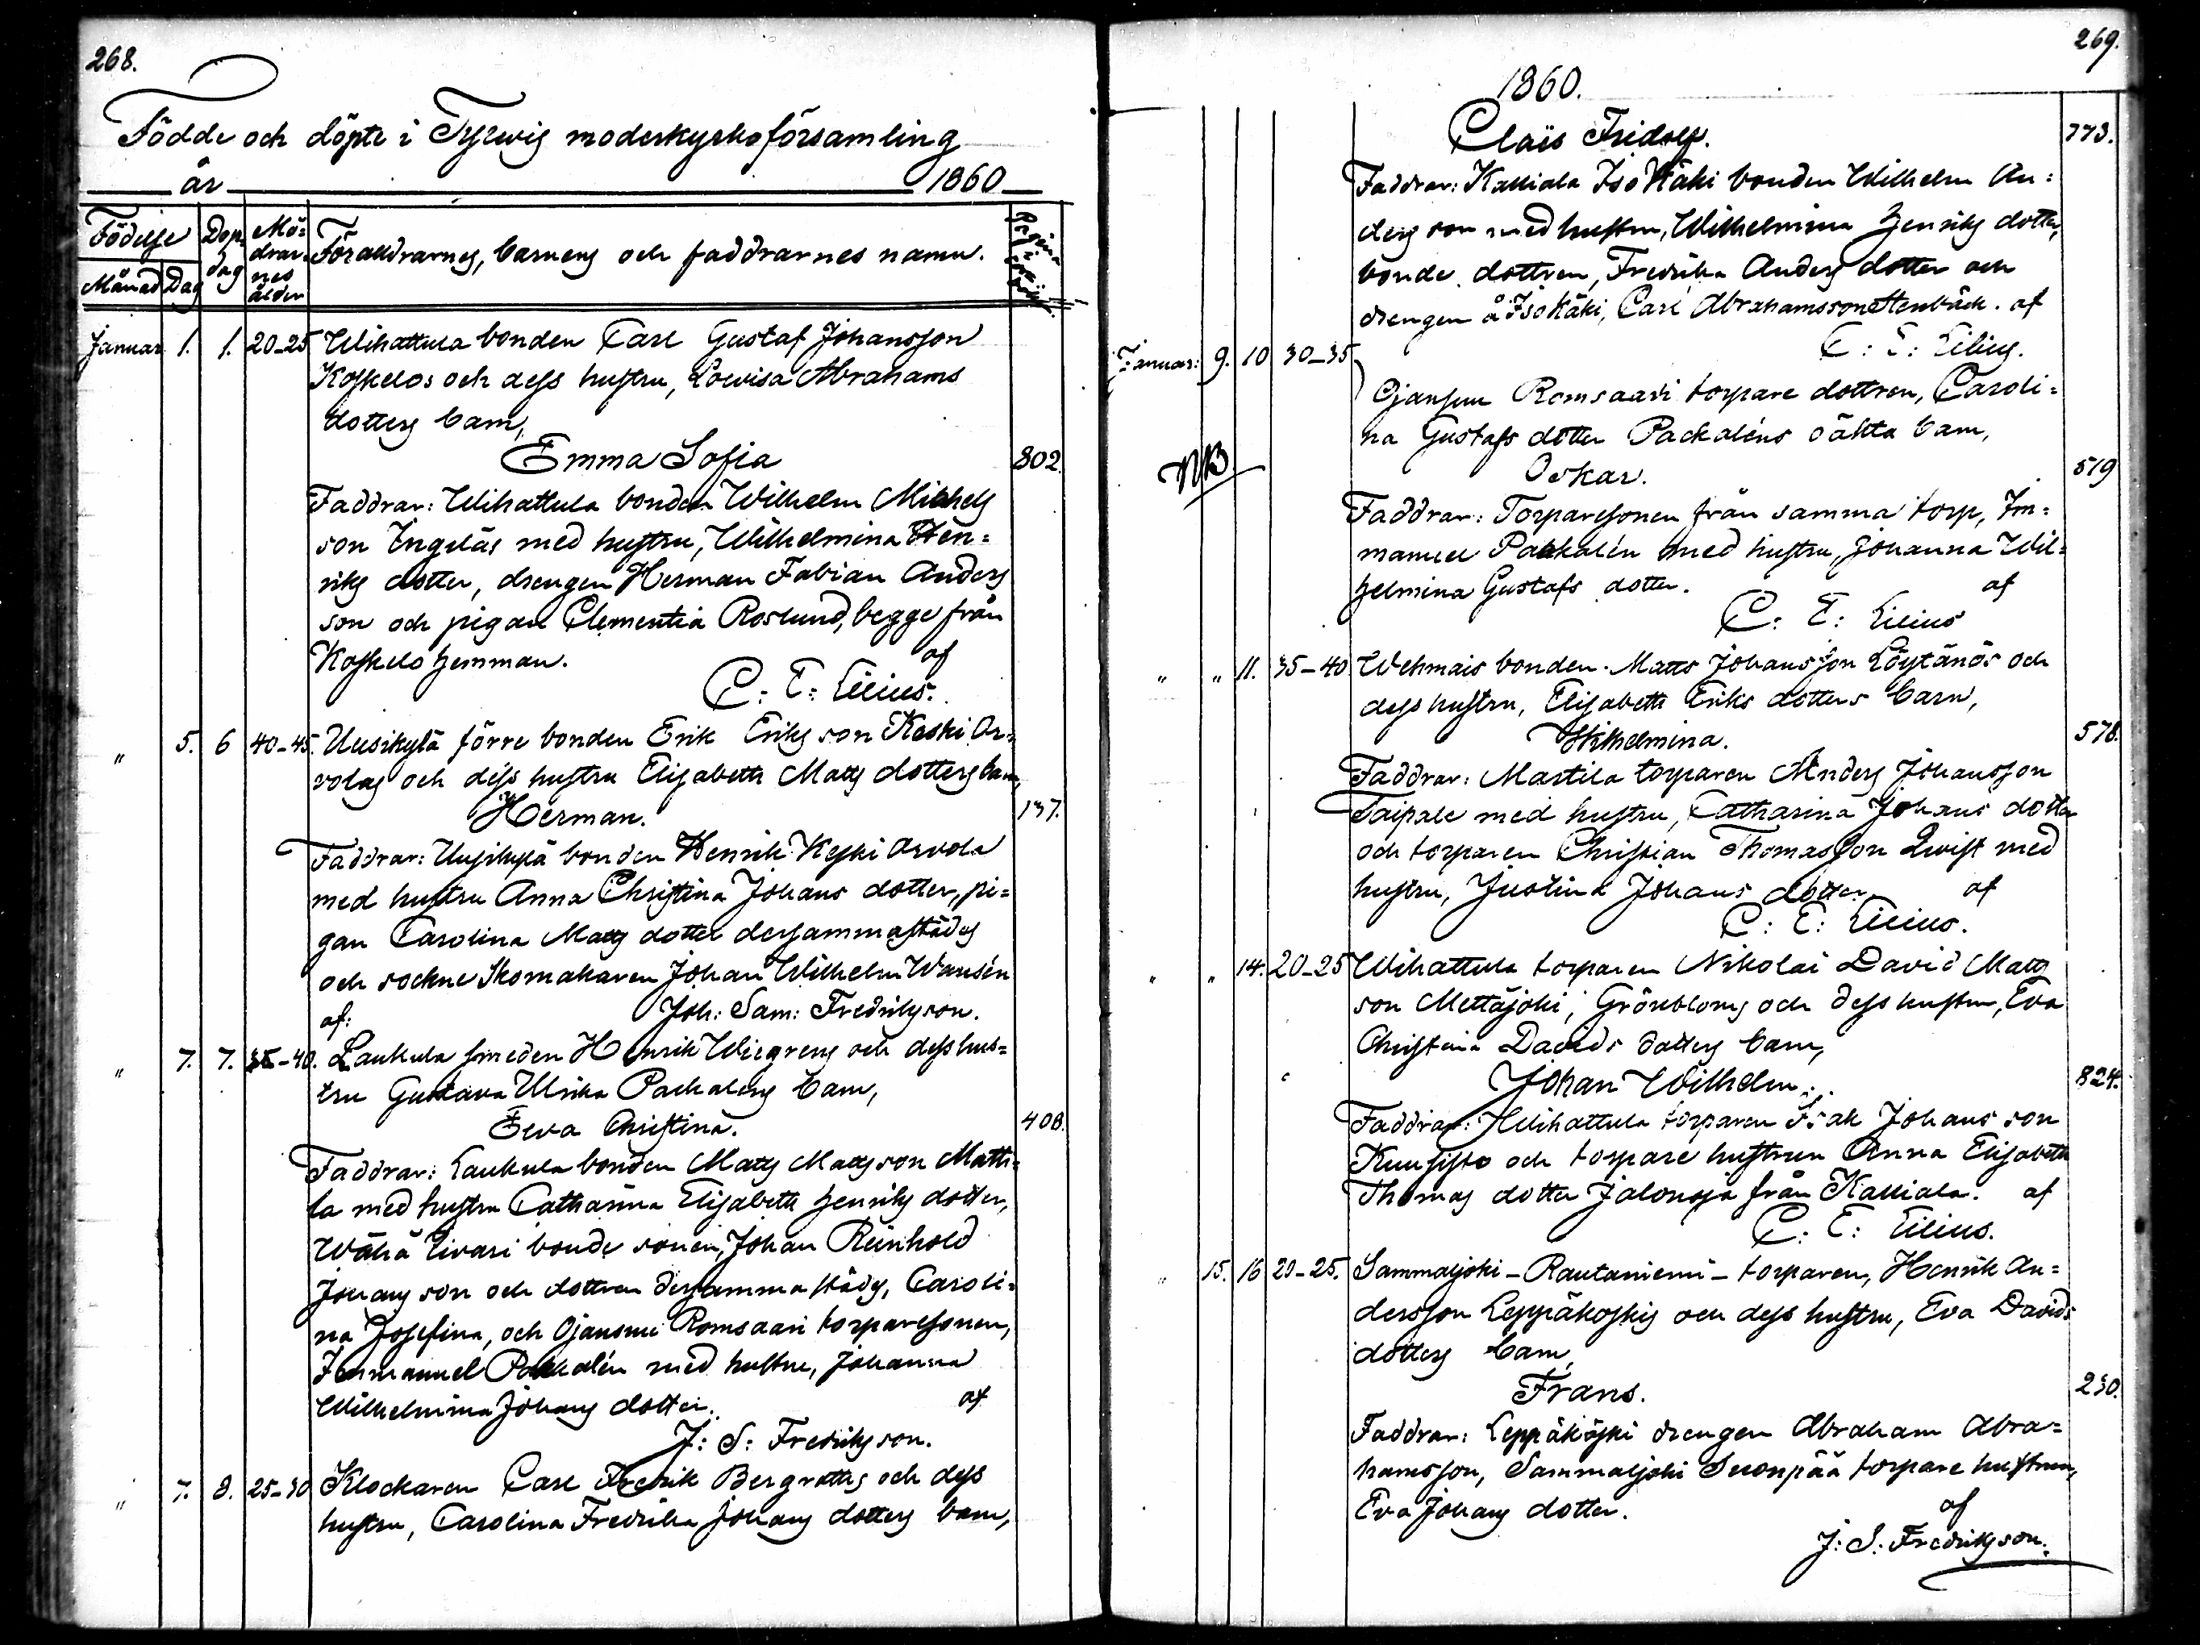 268.
Födde och döpte i Tyrwis moderkyrkoförsamling
år 1860
Födelse Dop- dag Mö- drar- nes ålder Föräldrarnes, barnens och faddrarnes namn.
Månad Dag
Januar. 1. 1. 20-25 Wihattula bonden Carl Gustaf Johansson
Koskelos och dess hustru, Lowisa Abrahams
dotters barn,
Emma Sofia 802.
Faddrar: Wihattula bonden Wilhelm Michels
son Ingeläs med hustru, Wilhelmina Hen=
riks dotter, drengen Herman Fabian Anders
son och pigan Clementia Roslund, begge från
Koskelo hemman. af
C: E: Lilius.
" 5. 6 40-45. Uusikylä förre bonden Erik Eriks son Keski Ar=
volas och dess hustru Elisabeth Matts dotters barn,
Herman. 137.
Faddrar: Uusikylä bonden Henrik Keski Arvola
med hustru Anna Christina Johans dotter, pi=
gan Carolina Matts dotter dersammastädes
och sockne Skomakaren Johan Wilhelm Wansén
af: Joh: Sam: Fredriksson.
" 7. 7. 35-40. Laukula smeden Henrik Wiegrens och dess hus=
tru Gustava Ulrika Packaléns barn,
Eva Christina. 408.
Faddrar: Laukula bonden Matts Mattsson Matti=
la med hustru Catharina Elisabeth Henriks dotter,
Wähä Liuari bonde sonen, Johan Reinhold
Johans son och dottren dersamma städs, Caroli=
na Josefina, och Ojansuu Romsaari torparesonen,
Immanuel Pakkalén med hustru, Johanna
Wilhelmina Johans dotter. af
J: S: Fredriksson.
" 7. 8. 25-30 Klockaren Carl Fredrik Bergroths och dess
hustru, Carolina Fredrika Johans dotters barn,
269.
1860.
Claës Fridolf. 773.
Faddrar: Kalliala Iso Käki bonden Wilhelm An=
ders son med hustru, Wilhelmina Henriks dotter,
bonde dottren, Fredrika Anders dotter och
drengen å Iso Käki, Carl Abrahamsson Stenbäck. af
C: E: Lilius.
Januar: 9. 10 30-35
Ojansuu Romsaari torpare dottren, Caroli=
na Gustafs dotter Packaléns oäkta barn,
NB Oskar. 519
Faddrar: Torparesonen från samma torp, Im=
manuel Pakkalén med hustru, Johanna Wil=
helmina Gustafs dotter. af
C: E: Lilius
" " 11. 35-40 Wehmais bonden Matts Johansson Löytänös och
dess hustru, Elisabeth Eriks dotters barn,
Wilhelmina. 578.
Faddrar: Martila torparen Anders Johansson
Taipale med hustru, Catharina Johans dotter
och torparen Christian Thomasson Qwist med
hustru, Justina Johans dotter. af
C: E: Lilius.
" " 14. 20-25 Wihattula torparen Nikolai David Matts
son Mettäjoki, Grönbloms och dess hustru, Eva
Christina Davids dotters barn,
Johan Wilhelm. 824.
Faddrar: Wihattula torparen Isak Johans son
Kuusisto och torpare hustrun Anna Elisabeth
Thomas dotter Jalonoja från Kalliala. af
C: E: Lilius.
" 15. 16 20-25. Sammaljoki-Rautaniemi-torparen, Henrik An=
dersson Leppäkoskis och dess hustru, Eva Davids
dotters barn,
Frans. 230.
Faddrar: Leppäkoski drengen Abraham Abra=
hamsson, Sammaljoki Suonpää torpare hustrun,
Eva Johans dotter.
af
J: S: Fredriksson.